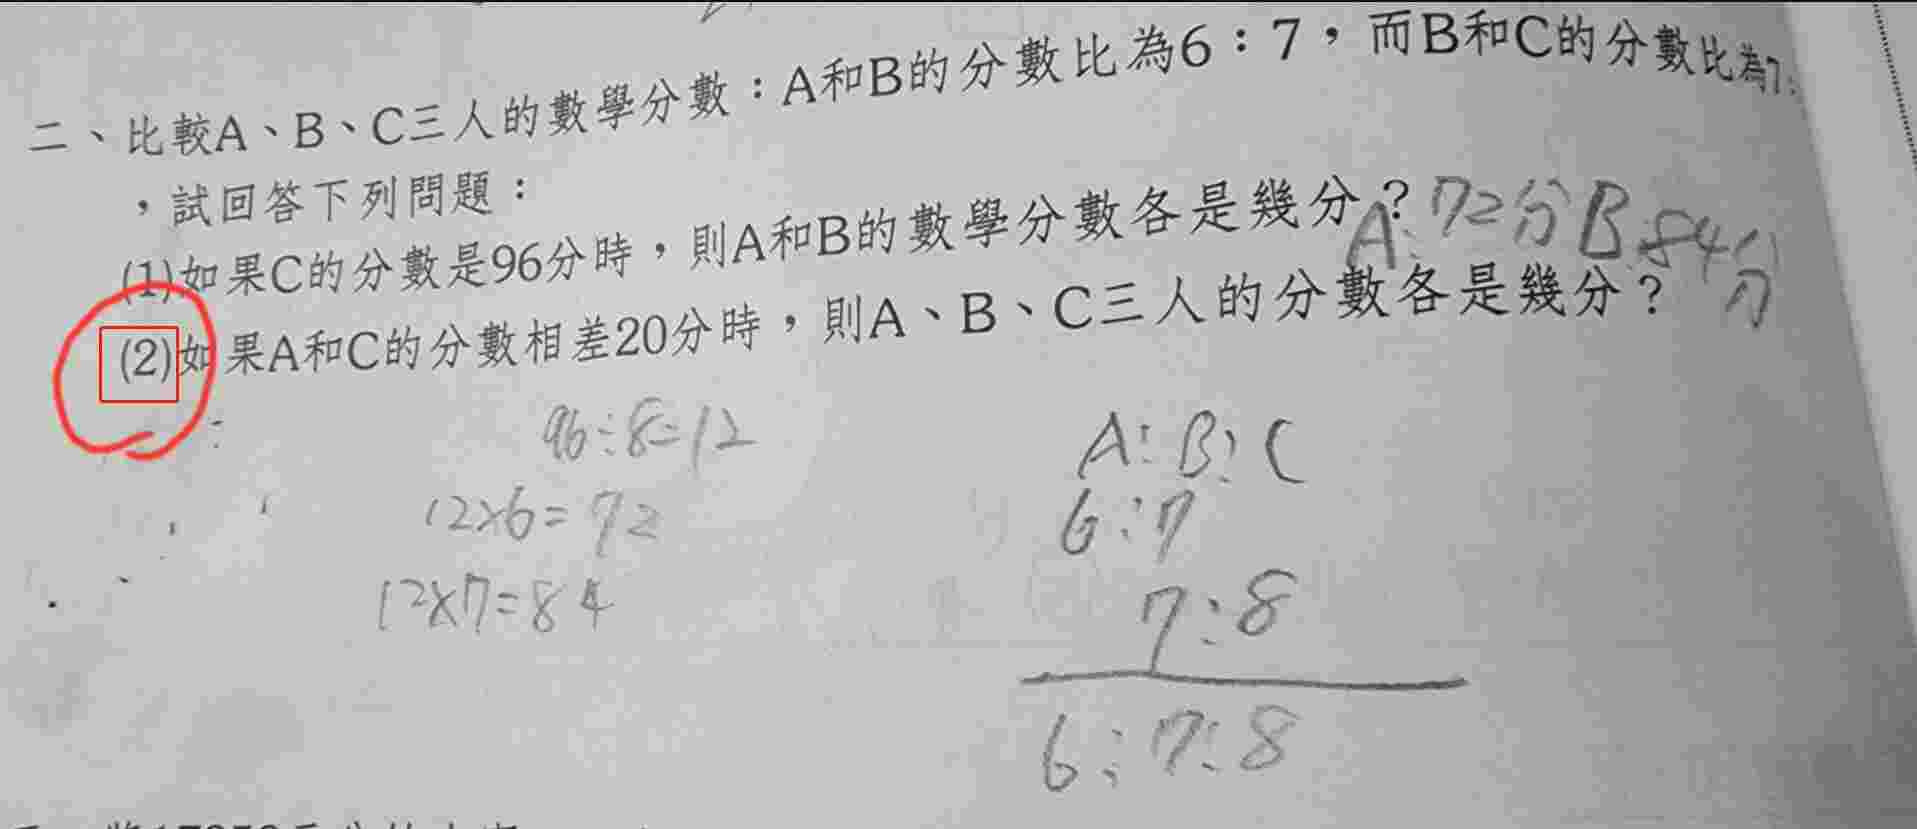 二、比較A、B、C三人的數學分數：A和B的分數比為6：7，而B和C的分數比為7：
，試回答下列問題：
(1)如果C的分數是96分時，則A和B的數學分數各是幾分？A:72分B:84分
(2)如果A和C的分數相差20分時，則A、B、C三人的分數各是幾分？
96÷8=12
12×6=72
12×7=84
A:B:C
6:7
7:8
6:7:8